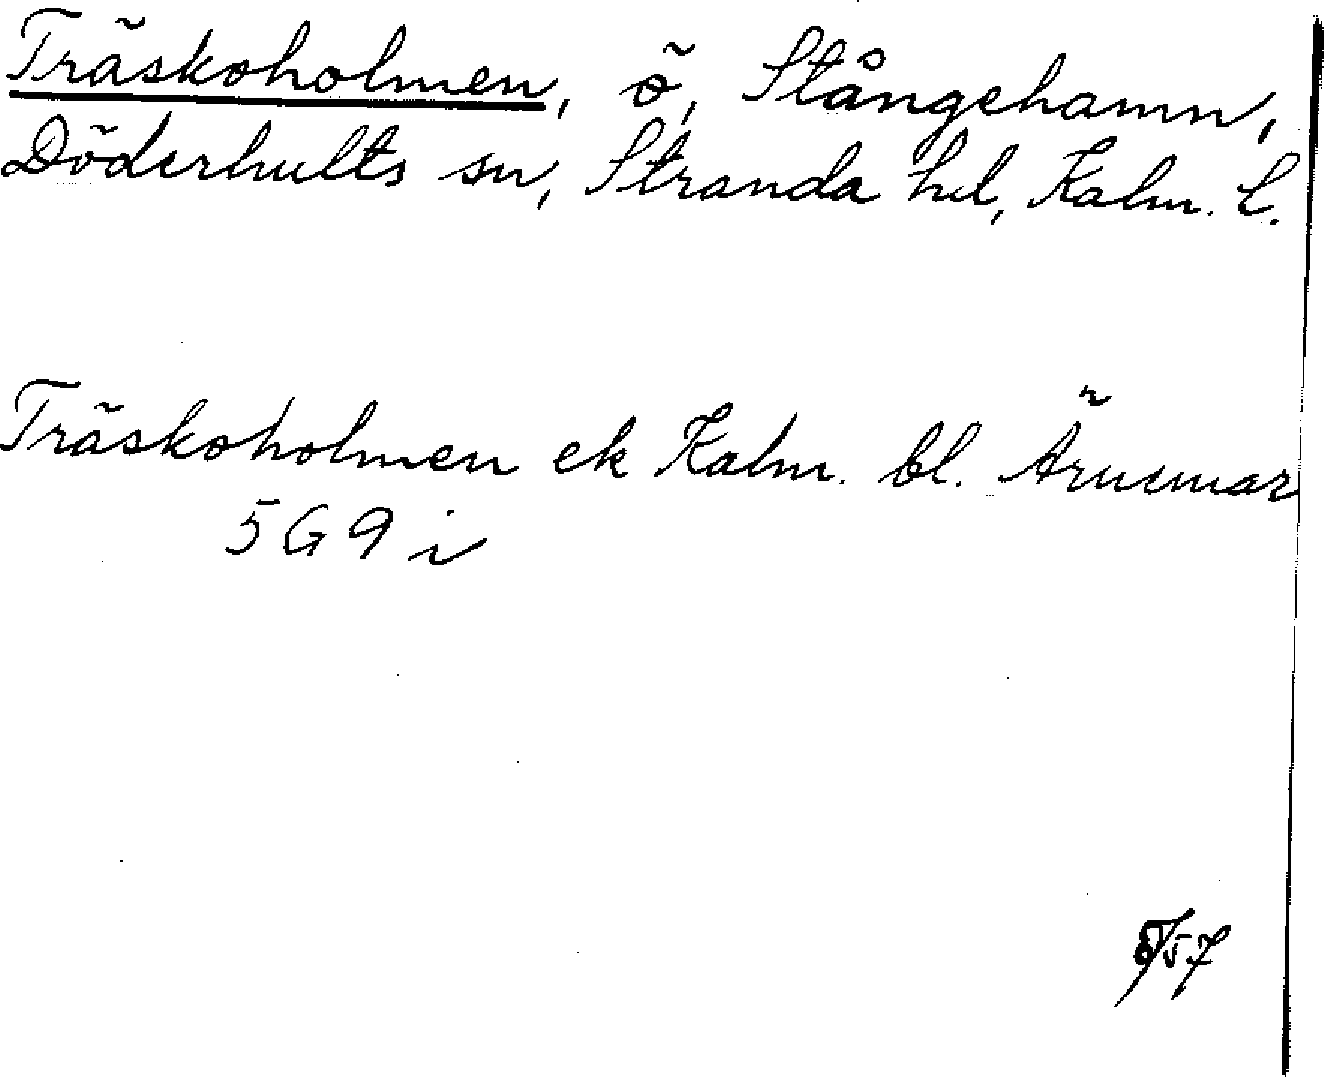 Träskoholmen, ö, Stångehamn,
Döderhults sn, Stranda hd, Kalm. L.
Träskoholmen ek Kalm. bl. Ärnemar
5G9i